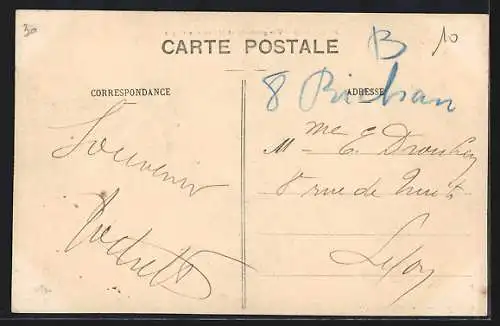 30
B
10
CARTE POSTALE
8
CORRESPONDANCE
ADRESSE
Souvenir
Mme E.
8 rue de Nuits
Lyon